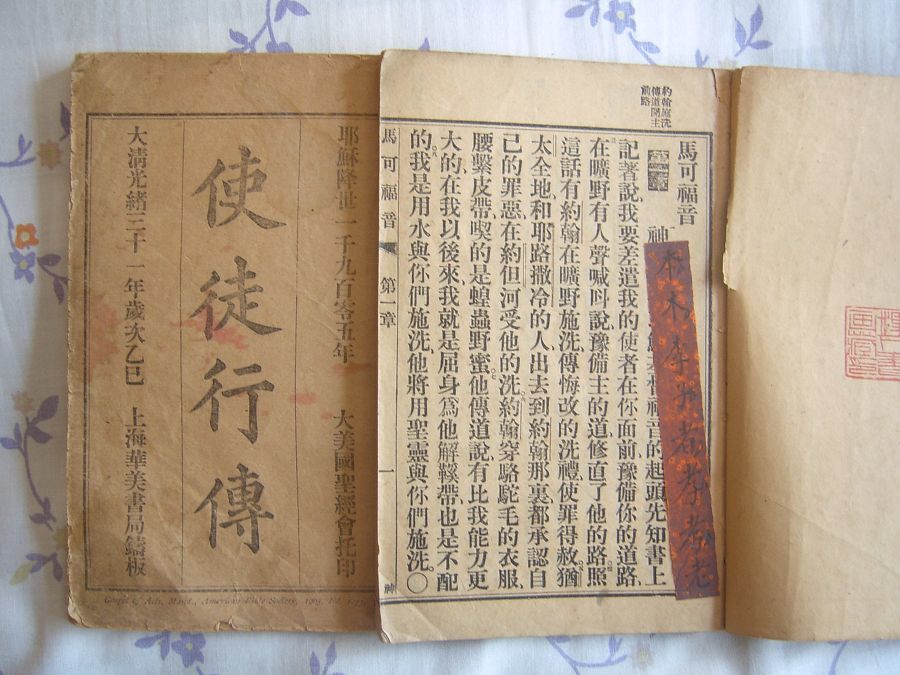 耶穌降世一千九百零五年 大美國聖經會托印
使徒行傳
大淸光緖三十一年歲次乙巳 上海華美書局鑄板
Gospel of Acts, Mand., American Bible Society, 1905.
約翰施洗
傳道開主
前路
馬可福音
第一章
神 福音的起頭先知書上
記著說我要差遣我的使者在你面前、豫備你的道路、
在曠野有人聲喊呌說、豫備主的道、修直了他的路、照
這話有約翰在曠野施洗、傳悔改的洗禮、使罪得赦、猶
太全地和耶路撒冷的人、出去到約翰那裏、都承認自
己的罪惡、在約但河受他的洗、約翰穿駱駝毛的衣服、
腰繫皮帶、喫的是蝗蟲野蜜、他傳道說、有比我能力更
大的、在我以後來、我就是屈身爲他解鞵帶、也是不配
的、我是用水與你們施洗、他將用聖靈與你們施洗。〇
馬可福音 第一章 一 神
木 李 者 孝 老